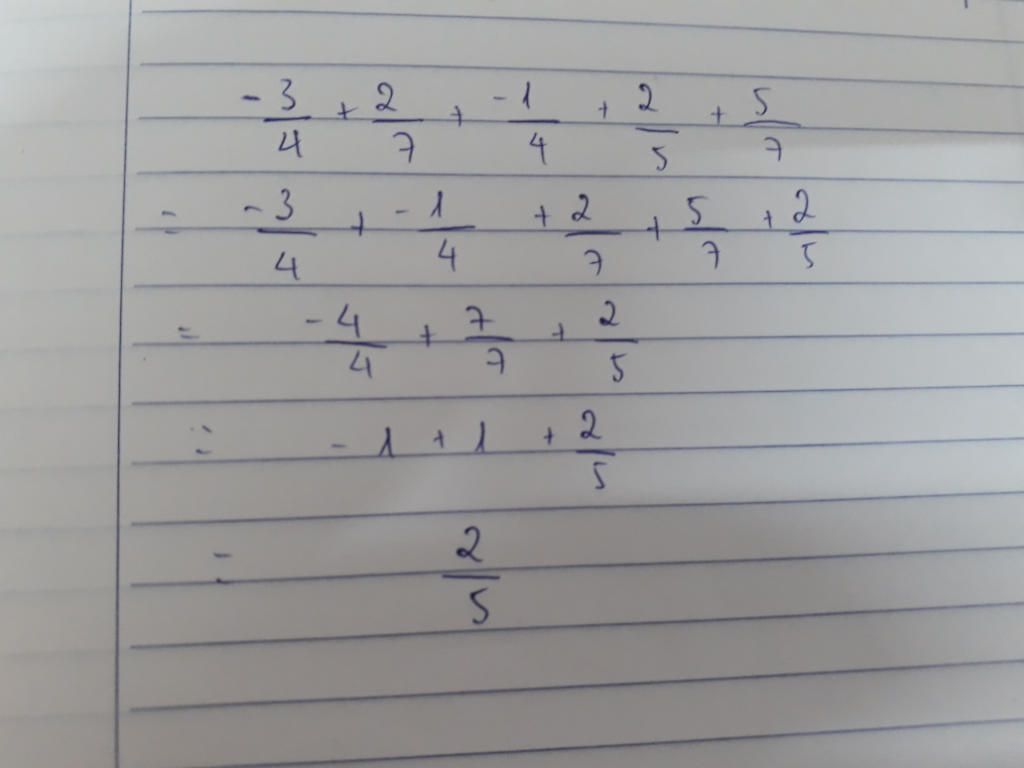 -3/4 + 2/7 + -1/4 + 2/5 + 5/7
= -3/4 + -1/4 + 2/7 + 5/7 + 2/5
= -4/4 + 7/7 + 2/5
= -1 + 1 + 2/5
= 2/5